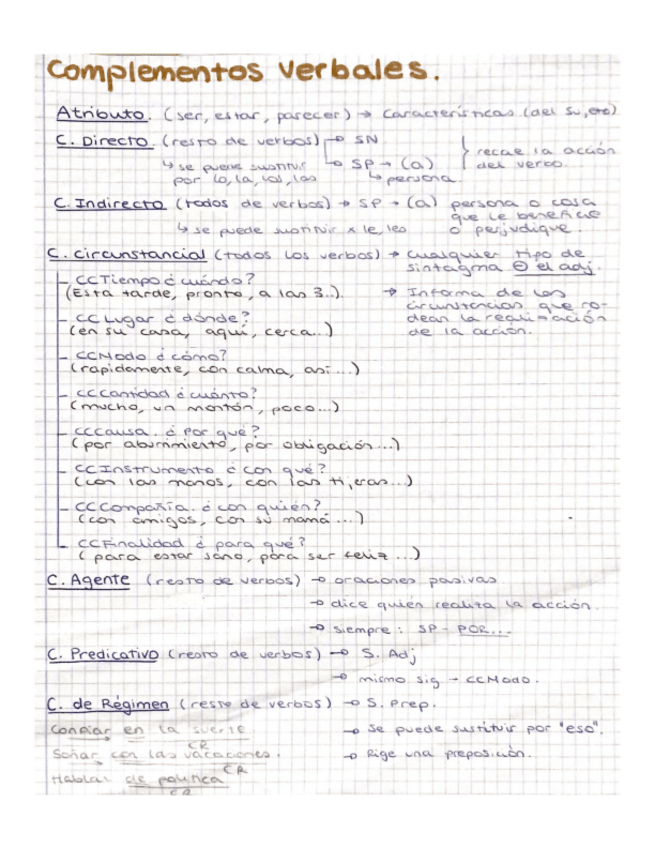 Complementos verbales.
Atributo. (ser, estar, parecer) → Características (del su, etc)
C. Directo. (resto de verbos) → SN
↳ se puede sustituir por lo, la, los, las
→ SP → (a)
↳ persona
recae la acción del verbo.
C. Indirecto (todos de verbos) → SP → (a) persona o cosa
que le beneficie
o perjudique.
↳ se puede sustituir x le, les
C. Circunstancial (todos los verbos) → cualquier tipo de
sintagma ⊖ el adj.
→ Informa de las
circunstancias que ro-
dean la realización
de la acción.
- CCTiempo ¿cuándo?
(Esta tarde, pronto, a las 3..)
- CCLugar ¿dónde?
(en su casa, aquí, cerca..)
- CCModo ¿cómo?
(rapidamente, con calma, así...)
- CCCantidad ¿cuánto?
(mucho, un montón, poco...)
- CCCausa. ¿Por qué?
(por aburrimiento, por obligación...)
- CCInstrumento ¿con qué?
(con las manos, con las tijeras...)
- CCCompañía. ¿con quién?
(con amigos, con su mamá...)
- CCFinalidad ¿para qué?
(para estar sano, para ser feliz...)
C. Agente (resto de verbos) → oraciones pasivas
→ dice quién realiza la acción.
→ siempre: SP - POR...
C. Predicativo (resto de verbos) → S. Adj
→ mismo sig - CCModo.
C. de Régimen (resto de verbos) → S. Prep.
→ Se puede sustituir por "eso".
→ Rige una preposición.
Confiar en la suerte
CR
Soñar con las vacaciones.
CR
Hablar de política
CR